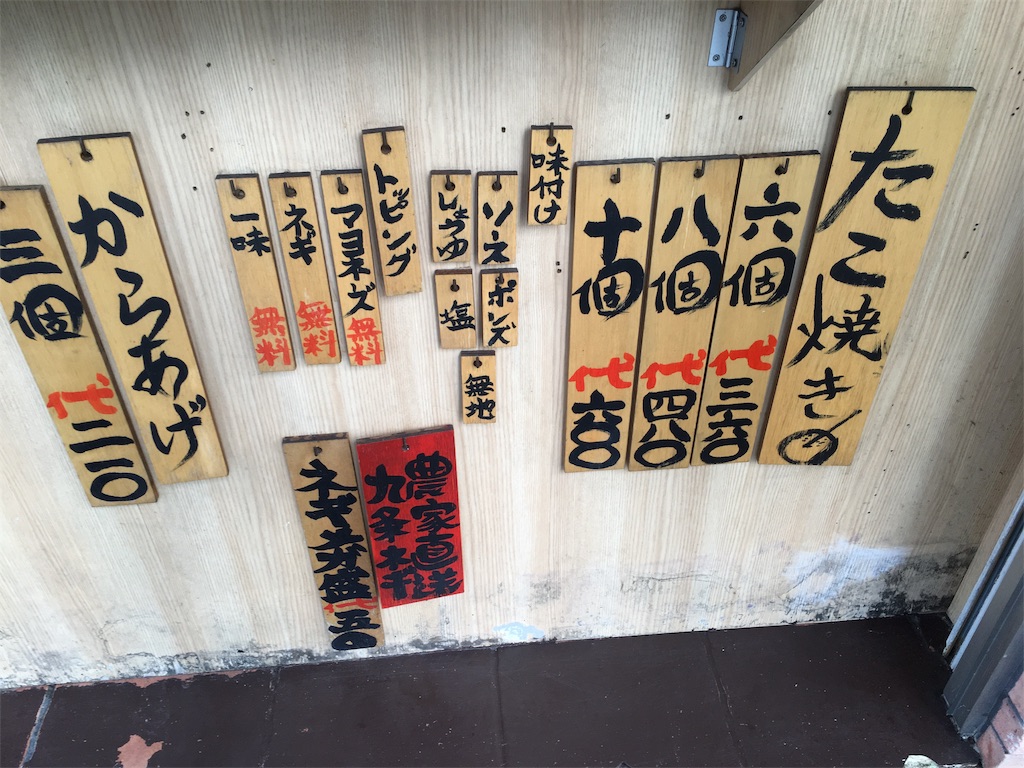 たこ焼き
六個 代三六〇
八個 代四八〇
十個 代六〇〇
味付け
ソース
しょうゆ
ポンズ
塩
無地
トッピング
マヨネーズ 無料
ネギ 無料
一味 無料
農家直送
九条ネギ
ネギ 盛 代五〇
からあげ
三個 代二二〇